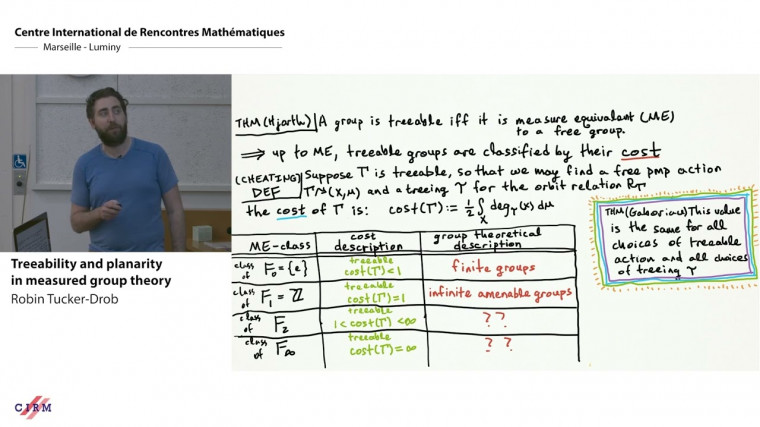 Centre International de Rencontres Mathématiques
Marseille - Luminy
THM (Hjorth) | A group is treeable iff it is measure equivalent (ME)
to a free group.
⟹ up to ME, treeable groups are classified by their cost
(CHEATING) Suppose Γ is treeable, so that we may find a free pmp action
DEF Γ↷(X,μ) and a treeing Υ for the orbit relation R_Γ
the cost of Γ is: cost(Γ) := 1/2 ∫_X deg_Υ(x) dμ
THM (Gaboriau) This value
is the same for all
choices of treeable
action and all choices
of treeing Υ
ME-CLASS cost description group theoretical description
class of F₀ = {e} treeable cost(Γ) < 1 finite groups
class of F₁ = ℤ treeable cost(Γ) = 1 infinite amenable groups
class of F₂ treeable 1 < cost(Γ) < ∞ ??
class of F∞ treeable cost(Γ) = ∞ ??
Treeability and planarity
in measured group theory
Robin Tucker-Drob
CIRM